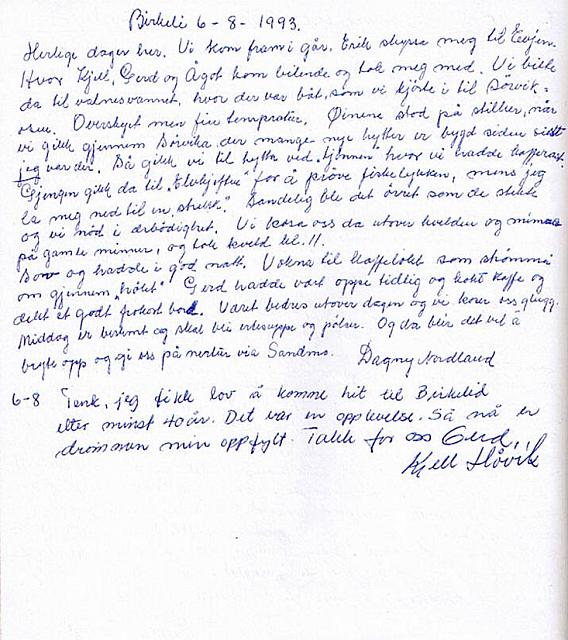 Birkeli 6-8-1993.
Herlige dager her. Vi kom fram i går. Erik skyssa meg til Eevjen.
Hvor Kjell, Gerd og Ågot kom bilende og tok meg med. Vi bilte
da til valnesvannet, hvor der var båt, som vi kjörte i til Sörvik-
osen. Overskyet men fin tempratur. Öinene stod på stilker, når
vi gikk gjennem Sörvika der mange nye hytter er bygd siden sidst
jeg var der. Så gikk vi til hytta ved "tjönnen" hvor vi hadde kafferast.
Gjengen gikk da til "Elvkjeften" for å pröve fiskelykken, mens jeg
la meg ned til en "strekk". Sandelig ble det örret som de stekte
og vi nöd i ærbödighet. Vi kosa oss da utover kvelden og mimra
på gamle minner, og tok kveld kl. 11.
Sov og hadde ei god natt. Vakna til kaffelokt som strömma
om gjennem "rōret" Gerd hadde vært oppe tidlig og kokt kaffe og
dekt et godt frokost bord. Været bedres utover dagen og vi koser oss glugg.
Middag er bestemt og skal bli ertesuppe og pölser. Og da blir det vel å
bryte opp og gi oss på mertur via Sandmo.
Dagny Nordland
6-8 Tenk, jeg fikk lov å komme hit til Birkelid
etter minst 40 år. Det var en opplevelse. Så nå er
drömmen min oppfylt. Takk for oss Gerd,
Kjell Håvik